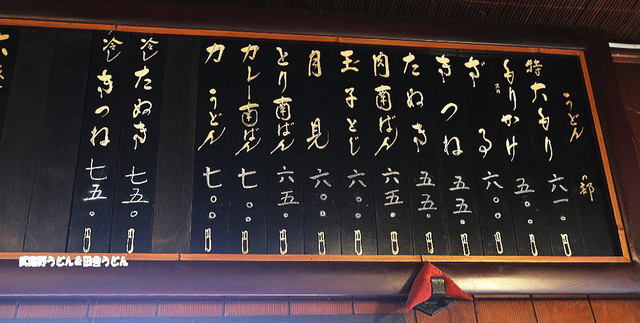 うどん
の部
特大もり 六一〇円
もりかけ 五〇〇円
ざる 六〇〇円
きつね 五五〇円
たぬき 五五〇円
肉南ばん 六五〇円
玉子とじ 六〇〇円
月見 六〇〇円
とり南ばん 六五〇円
カレー南ばん 七〇〇円
力うどん 七〇〇円
冷したぬき 七五〇円
冷しきつね 七五〇円
武蔵野うどん&田舎うどん